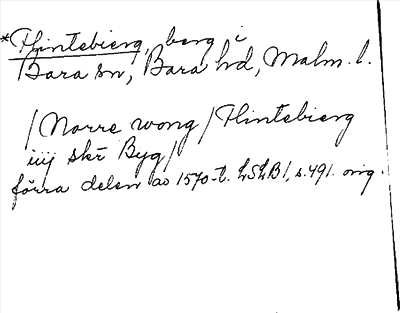 *Flintebierg, berg i
Bara sn, Bara hd, Malm. l.
/Norre wong/Flintebierg
iiij skr Byg/
förra delen av 1570-t. LSLB1, s.491. orig.